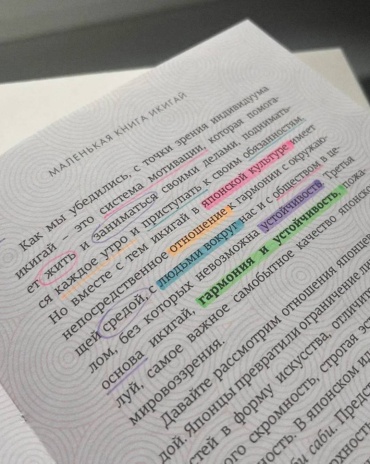 МАЛЕНЬКАЯ КНИГА ИКИГАЙ
Как мы убедились, с точки зрения индивидуума
икигай — это система мотивации, которая помога-
ет жить и заниматься своими делами, поднимать-
ся каждое утро и приступать к своим обязанностям.
Но вместе с тем икигай в японской культуре имеет
непосредственное отношение к гармонии с окружаю-
щей средой, с людьми вокруг нас и с обществом в це-
лом, без которых невозможна устойчивость. Третья
основа икигай, гармония и устойчивость,
луй, самое важное самобытное качество
мировоззрения.
Давайте рассмотрим отношения
дой. Японцы превратили ограничение
стей в форму искусства,
скромность, строгая
ность. В японском
би саби.